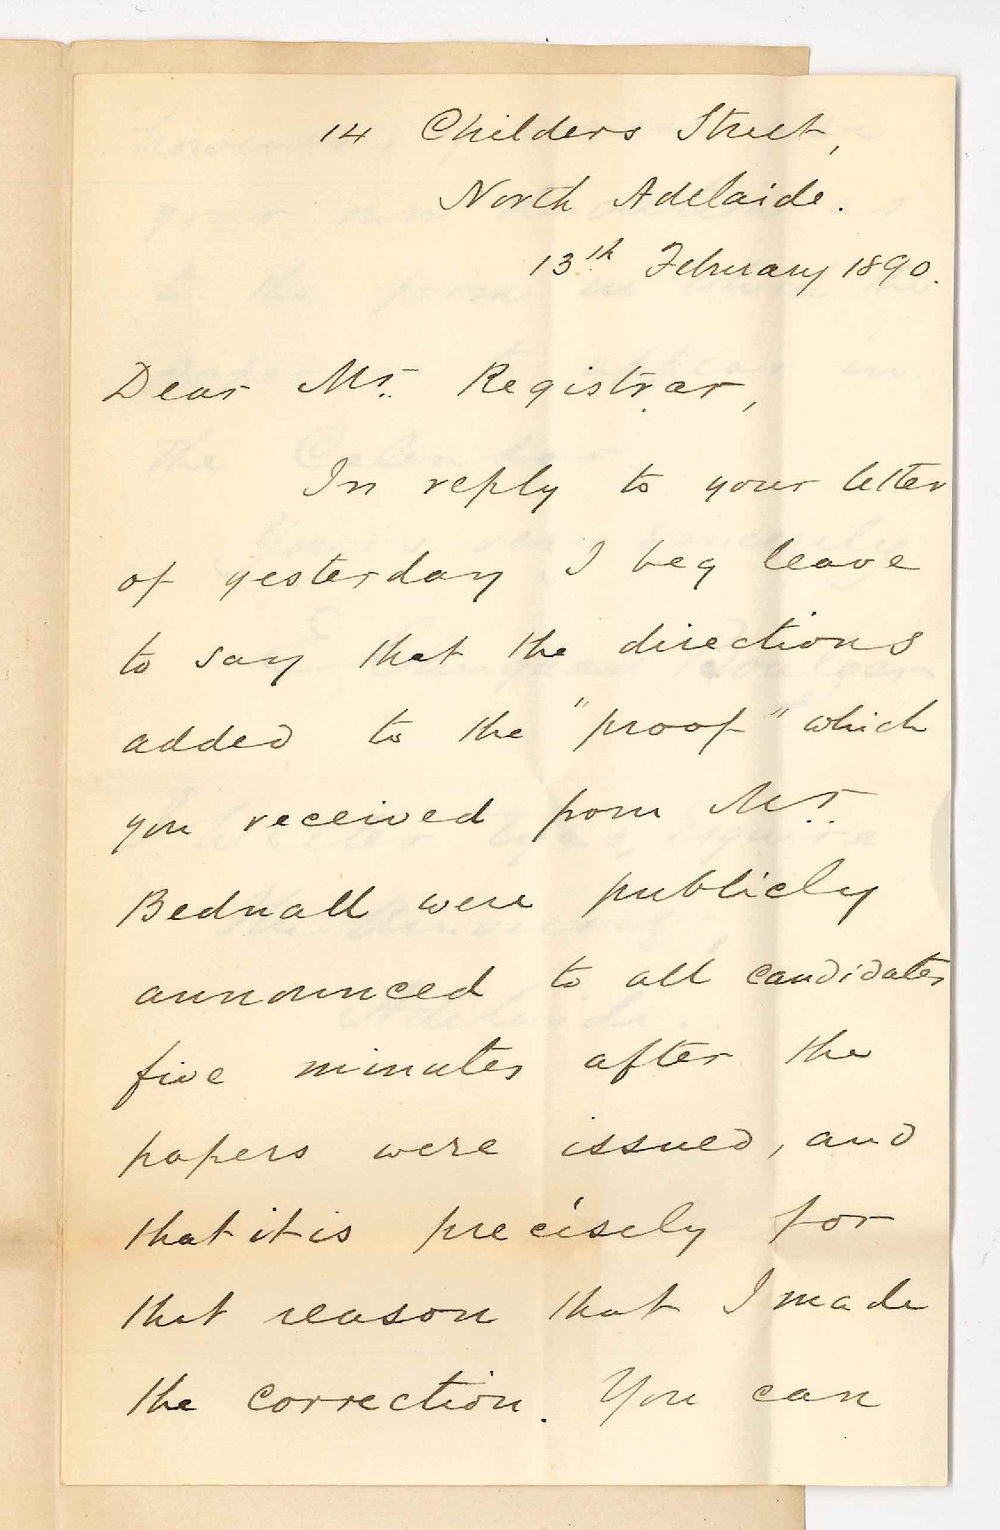 14 Childers Street,
North Adelaide.
13th February 1890.
Dear Mr. Registrar,
In reply to your letter
of yesterday I beg leave
to say that the directions
added to the "proof" which
you received from Mr.
Bednall were publicly
announced to all candidates
five minutes after the
papers were issued, and
that it is precisely for
that reason that I made
the correction. You can